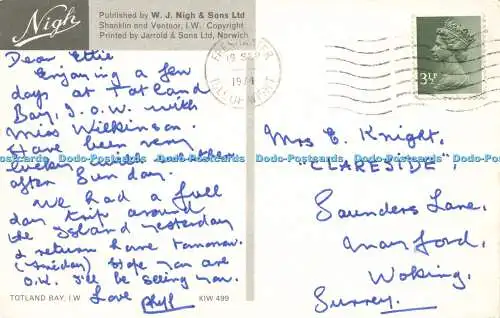 Nigh
Published by W. J. Nigh & Sons Ltd
Shanklin and Ventnor, I.W. Copyright
Printed by Jarrold & Sons Ltd, Norwich
Dear Ettie
Enjoying a few
days at Totland
Bay, I.O.W. with
Miss Wilkinson.
Have been very
lucky with weather
after Sunday.
We had a full
day trip around
the Island yesterday
& return home tomorrow.
(Friday) Hope you are
O.K. I'll be seeing you.
Love Phyl
TOTLAND BAY, I.W
KIW 499
FRESHWATER
19 SEP
1974
ISLE OF WIGHT
3½P
Mrs E. Knight,
"CLARESIDE",
Saunders Lane,
Mayford,
Woking,
Surrey.
Dodo-Postcards Dodo-Postcards Dodo-Postcards Dodo-Postcards Dodo-Postcards Dodo-Postcards Dodo-Postcards